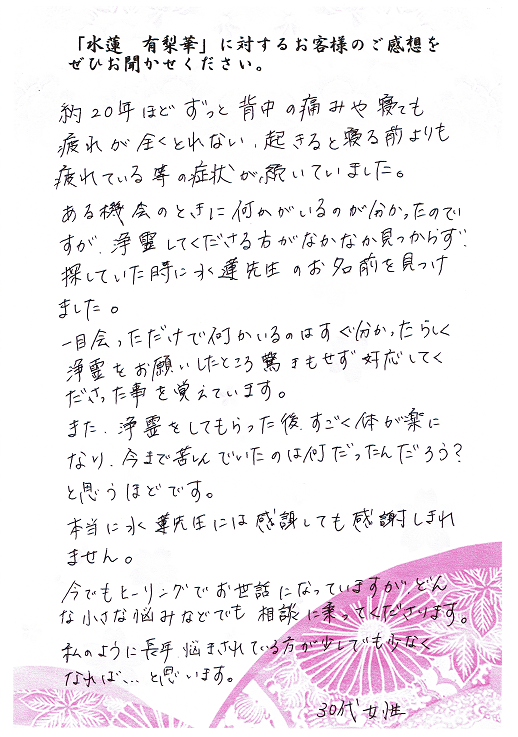 「水蓮　有梨華」に対するお客様のご感想を
ぜひお聞かせください。
約20年ほどずっと背中の痛みや寝ても
疲れが全くとれない、起きると寝る前よりも
疲れている等の症状が、続いていました。
ある機会のときに何かがいるのが分かったのです
すが、浄霊してくださる方がなかなか見つからず、
探していた時に水蓮先生のお名前を見つけ
ました。
一目会っただけで何かいるのはすぐ分かったらしく
浄霊をお願いしたところ驚きもせず対応してく
ださった事を覚えています。
また、浄霊をしてもらった後、すごく体が楽に
なり、今まで苦しんでいたのは何だったんだろう？
と思うほどです。
本当に水蓮先生には感謝しても感謝しきれ
ません。
今でもヒーリングでお世話になっていますが、どん
な小さな悩みなどでも相談に乗ってくださります。
私のように長年悩まされている方が少しでも少なく
なれば…と思います。
30代女性